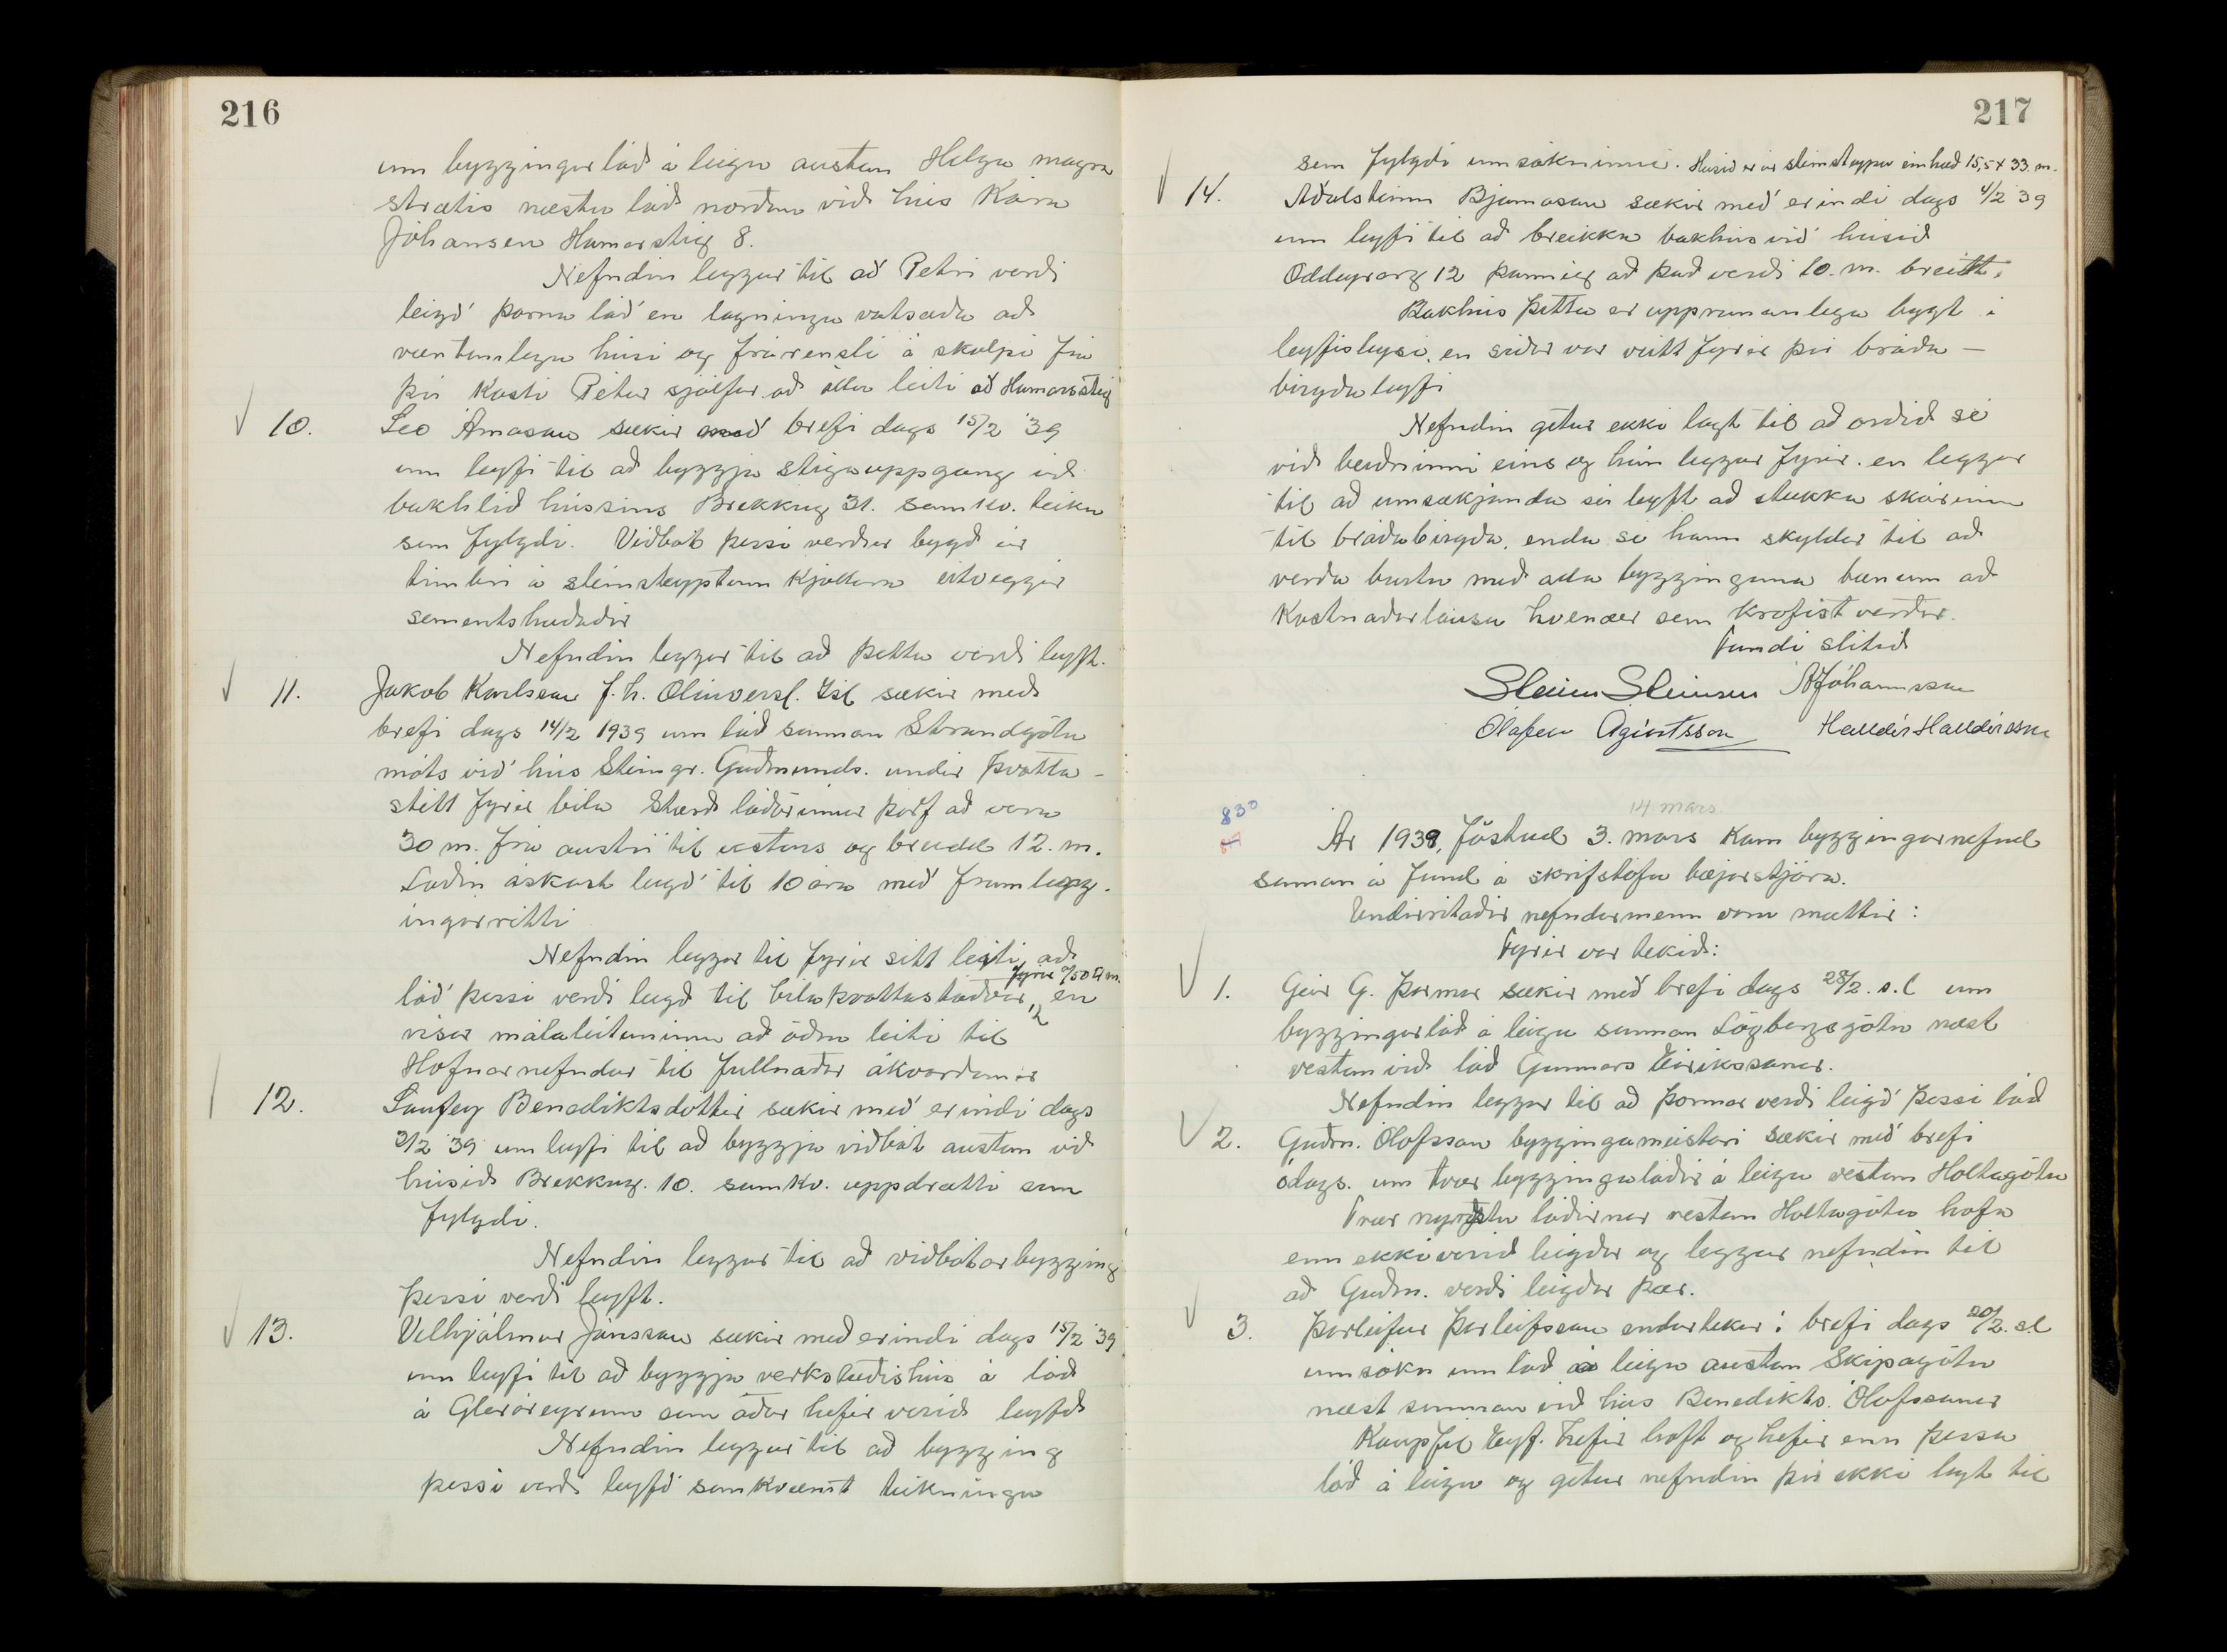 216
um byggingarlóð á leigu austan Helga magra
strætis næstu lóð norðan við hús Kára
Jóhansen Hamarstig 8.
Nefndin leggur til að Petri verði
leigð þarna lóð en lagningu vatsæða að
væntanlegu húsi og frárensli á skolpi frá
því kosti Petur sjálfur að öllu leiti að Hamarsstig
10. Leo Árnason sækir með brefi dags 15/2 '39
um leyfi til að byggja stigauppgang við
bakhlið hússins Brekkug 31. samkv. teikn
sem fylgdi. Viðbót þessi verður bygð úr
timbri á steinsteyptum kjallara útveggir
sementshúðaðir
Nefndin leggur til að þetta verði leyft.
11. Jakob Karlsson f.h. Olíuversl. Ísl sækir með
brefi dags 14/2 1939 um lóð sunnan Strandgötu
móts við hús Steingr. Guðmunds. undir þvotta-
stétt fyrir bíla Stærð lóðarinnar þarf að vera
30 m. frá austri til vesturs og breidd 12. m.
Lóðin áskast leigð til 10 ára með framlegg-
ingarrétti
Nefndin leggur til fyrir sitt leiti, að
lóð þessi verði leigð til bílaþvottastöðvar, fyrir 0/50 □ m. en
vísar málaleituninni að öðru leiti til
Hafnarnefndar til fullnaðar ákvörðunar
12. Laufey Benediktsdóttir sækir með erindi dags
2/2 '39 um leyfi til að byggja viðbót austan við
húsið Brekkug. 10. samkv. uppdrætti sem
fylgdi.
Nefndin leggur til að viðbótarbygging
þessi verði leyft.
13. Vilhjálmur Jónsson sækir með erindi dags 15/2 '39
um leyfi til að byggja verkstæðishús á lóð
á Gleráreyrum sem áður hefir verið leyfð
Nefndin leggur til að bygging
þessi verði leyfð samkvæmt teikningu
217
sem fylgdi umsókninni. Húsið er úr steinsteypu einhæð 15,5 x 33 m.
14. Aðalsteinn Bjarnason sækir með erindi dags 4/2 39
um leyfi til að breikka bakhús við húsið
Oddeyrarg 12 þannig að það verði 10. m. breitt.
Bakhús þetta er upprunanlega bygt í
leyfisleysi, en síðar var veitt fyrir því bráða-
birgðaleyfi
Nefndin getur ekki lagt til að orðið sé
við beiðninni eins og hún leggur fyrir. en leggur
til að umsækjanda sé leyft að stækka skúrinn
til bráðabirgða, enda sé hann skyldur til að
verða burtu með alla bygginguna bænum að
kostnaðarlausu hvenær sem krafist verður.
Fundi slitið
Steinn Steinsen AJóhannsson
Ólafur Ágústsson Halldór Halldórsson
830
14 mars
Ár 1939, föstud 3. mars kom byggingarnefnd
saman á fund á skrifstofu bæjarstjóra.
Undirritaðir nefndarmenn voru mættir:
Fyrir var tekið:
1. Geir G. Þormar sækir með brefi dags 28/2. s.l um
byggingarlóð á leigu sunnan Lögbergsgötu næst
vestan við lóð Gunnars Eiríkssonar.
Nefndin leggur til að Þormar verði leigð þessi lóð
2. Guðm. Ólafsson byggingameistari sækir með brefi
ódags. um tvær byggingalóðir á leigu vestan Holtagötu
Tvær nyrstu lóðirnar vestan Holtagötu hafa
enn ekki verið leigðar og leggur nefndin til
að Guðm. verði leigðar þær.
3. Þorleifur Þorleifsson endurtekur í brefi dags 20/2. s.l
umsókn um lóð á leigu austan Skipagötu
næst sunnan við hús Benedikts. Ólafssonar
Kaupfél Eyf. hefir haft og hefir enn þessa
lóð á leigu og getur nefndin því ekki lagt til